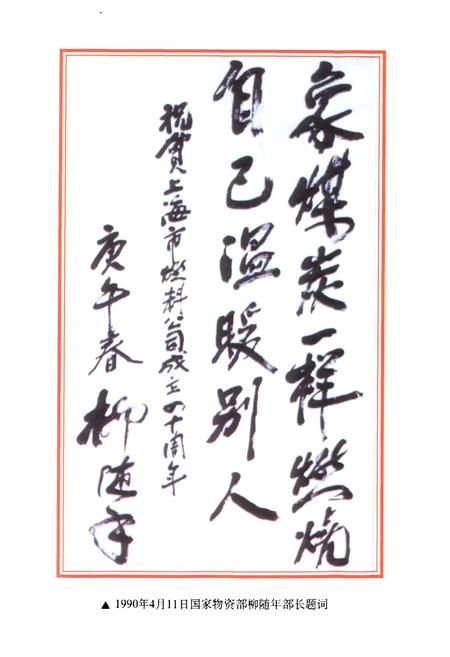 象煤炭一样燃烧
自己温暖别人
祝贺上海市燃料公司成立四十周年
庚午春
柳随年
▲ 1990年4月11日国家物资部柳随年部长题词